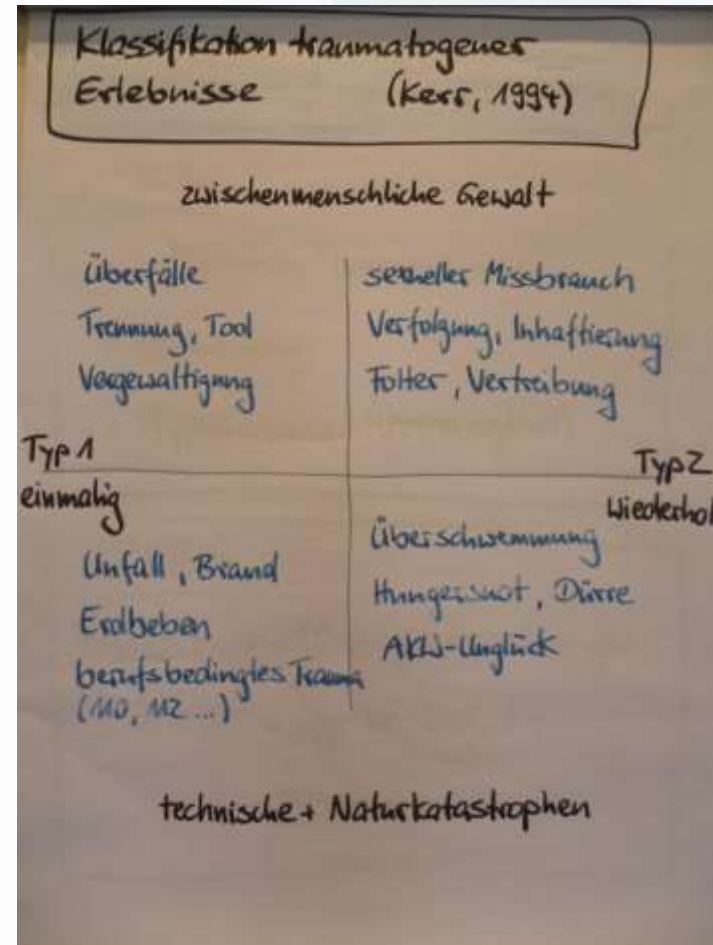 Klassifikation traumatogener
Erlebnisse (Kerr, 1994)
zwischenmenschliche Gewalt
Überfälle
Trennung, Tod
Vergewaltigung
sexueller Missbrauch
Verfolgung, Inhaftierung
Folter, Vertreibung
Typ 1
einmalig
Typ 2
Wiederhol
Unfall, Brand
Erdbeben
berufsbedingtes Trauma
(110, 112 ...)
Überschwemmung
Hungersnot, Dürre
AKW-Unglück
technische + Naturkatastrophen